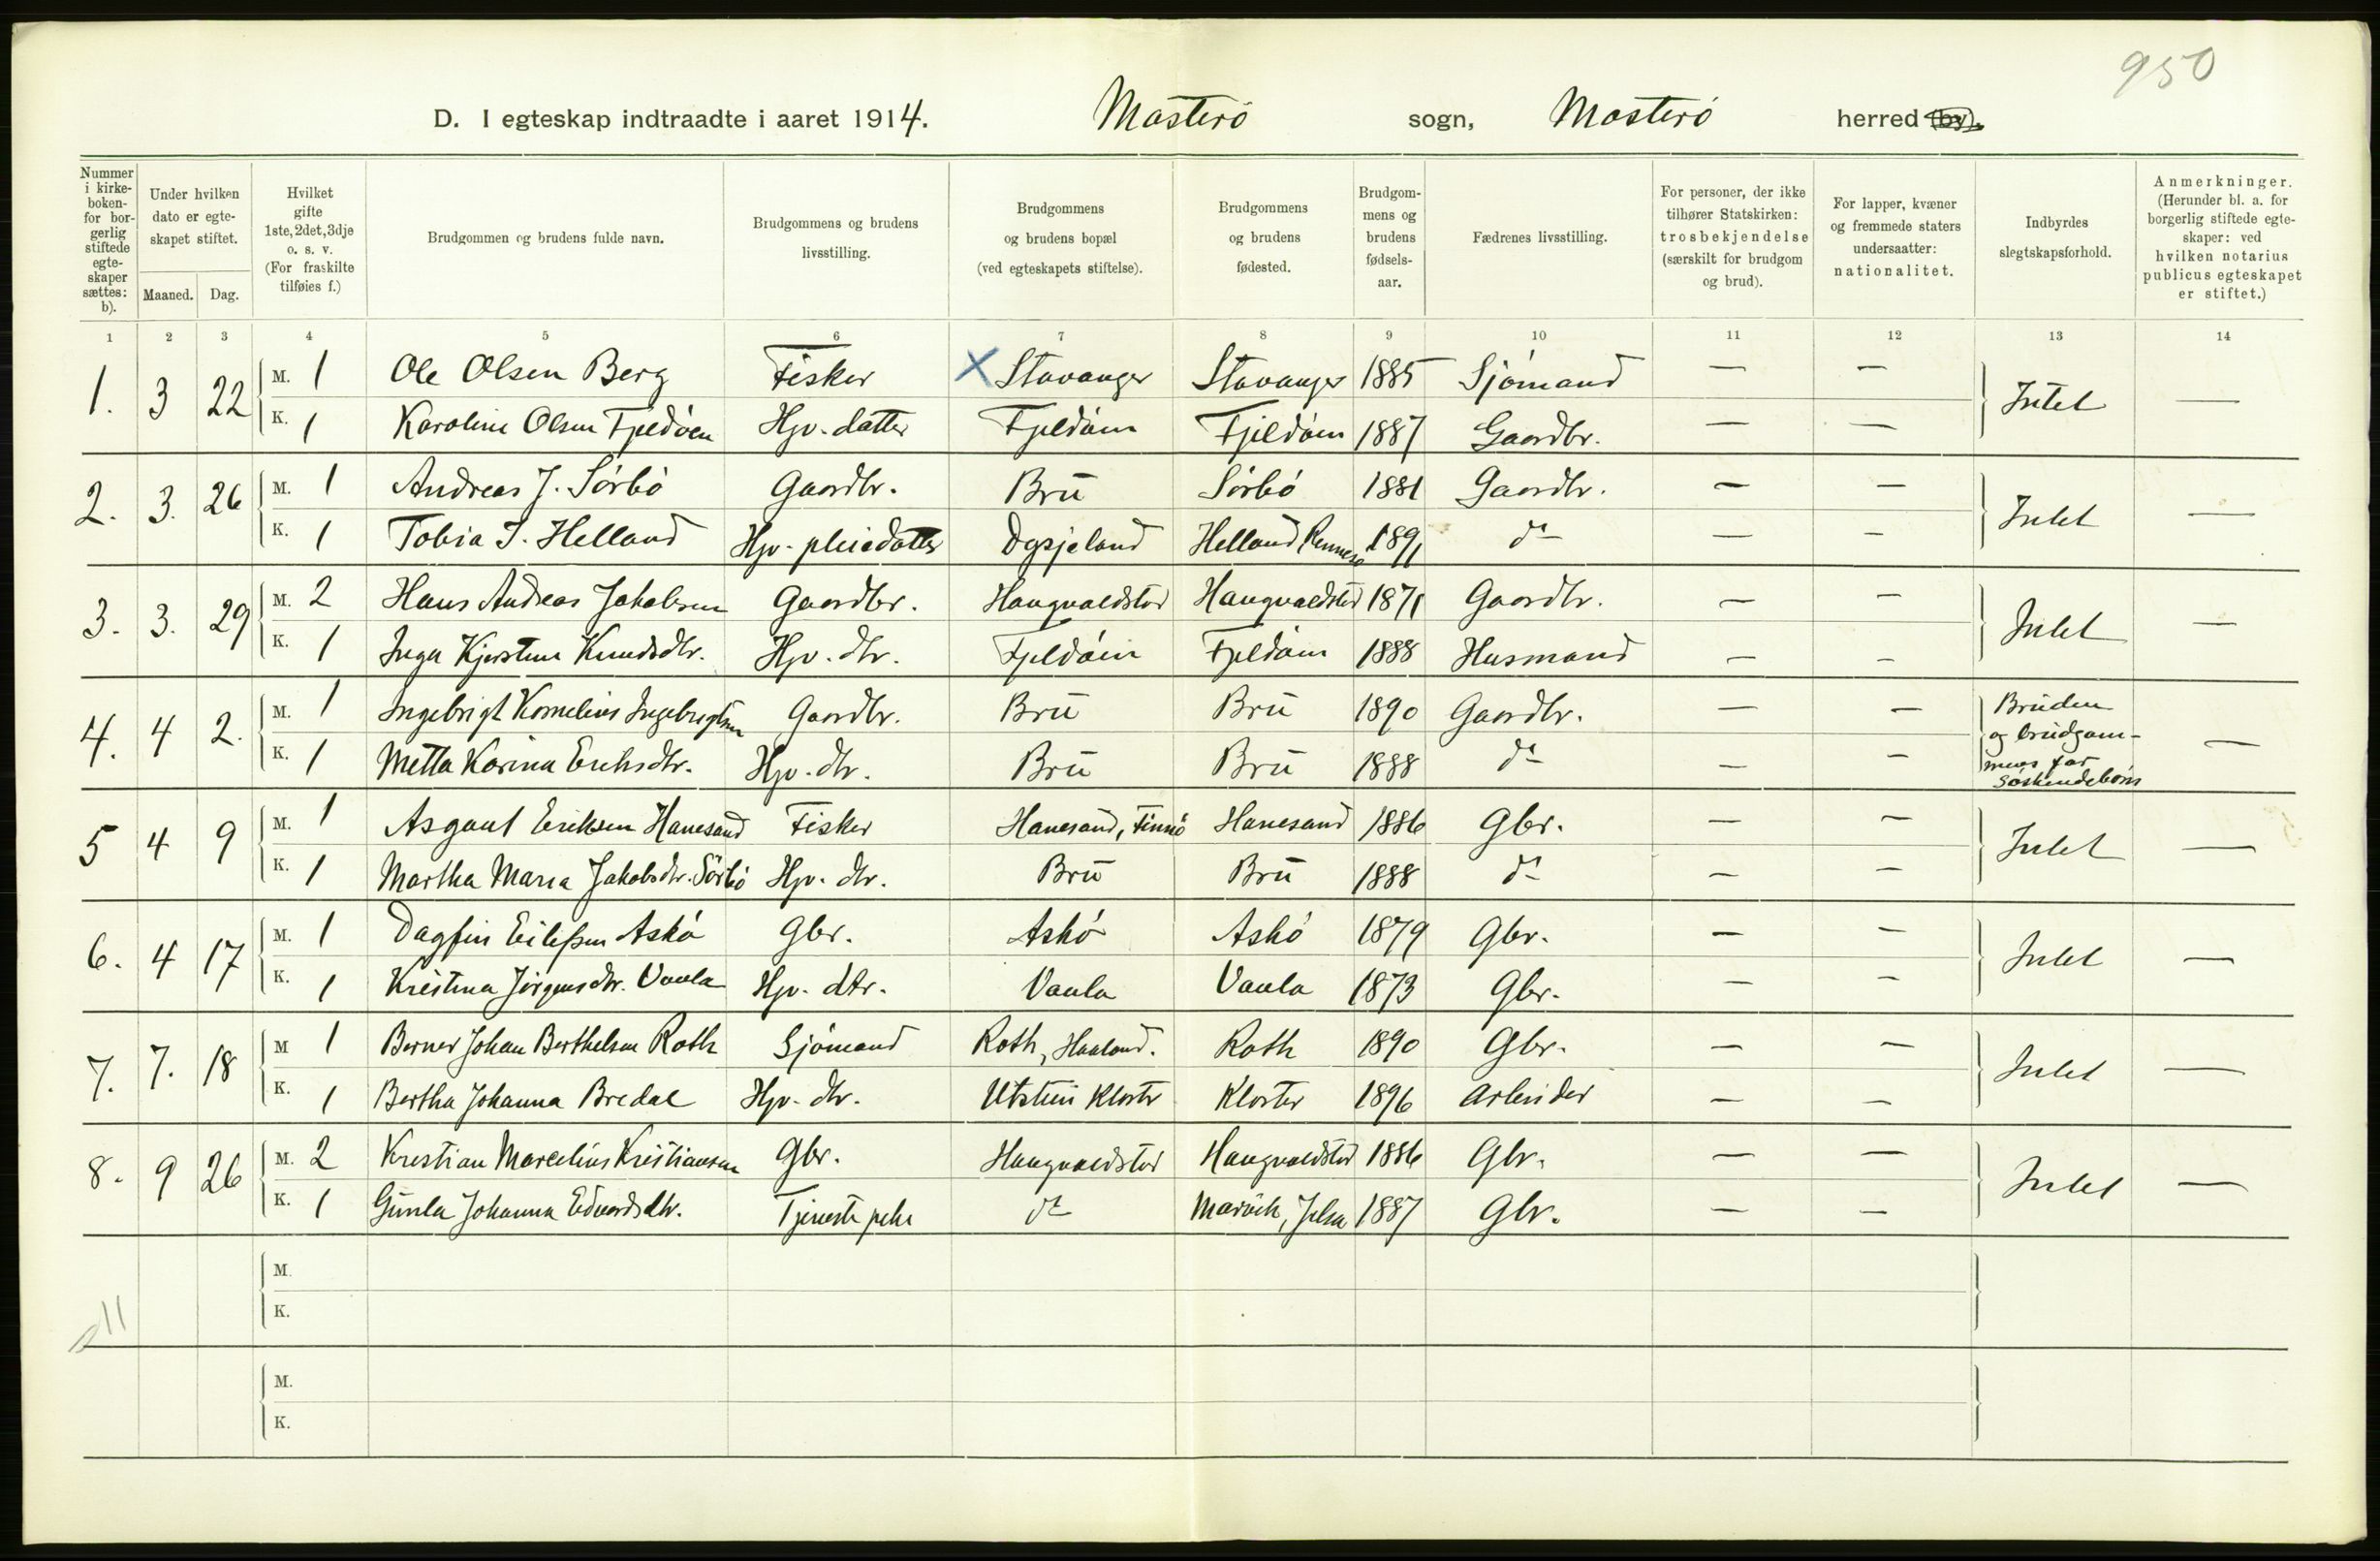 950
D. I egteskap indtraadte i aaret 1914. Mosterö sogn, Mosterö herred (by).
Nummer i kirke-boken for bor-gerlig stiftede egte-skaper sættes: b). | Under hvilken dato er egte-skapet stiftet. Maaned. Dag. | Hvilket gifte 1ste, 2det, 3dje o. s. v. (For fraskilte tilføies f.) | Brudgommen og brudens fulde navn. | Brudgommens og brudens livsstilling. | Brudgommens og brudens bopæl (ved egteskapets stiftelse). | Brudgommens og brudens fødested. | Brudgom-mens og brudens fødsels-aar. | Fædrenes livsstilling. | For personer, der ikke tilhører Statskirken: trosbekjendelse (særskilt for brudgom og brud). | For lapper, kvæner og fremmede staters undersaatter: nationalitet. | Indbyrdes slegtskapsforhold. | Anmerkninger. (Herunder bl. a. for borgerlig stiftede egte-skaper: ved hvilken notarius publicus egteskapet er stiftet.)
1 2 3 4 5 6 7 8 9 10 11 12 13 14
1. 3 22 M. 1 Ole Olsen Berg Fisker X Stavanger Stavanger 1885 Sjömand — — Intet —
K. 1 Karoline Olsen Fjeldöen Hjv. datter Fjeldöen Fjeldöen 1887 Gaardbr. — —
2. 3. 26 M. 1 Andreas J. Sörbö Gaardbr. Bru Sörbö 1881 Gaardbr. — — Intet —
K. 1 Tobia T. Helland Hjv. pleiedatter Dysjeland Helland Rennesö 1891 do — —
3. 3. 29 M. 2 Hans Andreas Jakobsen Gaardbr. Haugvaldstad Haugvaldstad 1871 Gaardbr. — — Intet —
K. 1 Inga Kjerstine Knudsdtr. Hjv. dtr. Fjeldöen Fjeldöen 1888 Husmand — —
4. 4 2. M. 1 Ingebrigt Kornelius Ingebrigtsen Gaardbr. Bru Bru 1890 Gaardbr. — — Bruden og brudgom-mens far söskendebörn —
K. 1 Metta Karina Eriksdtr. Hjv. dtr. Bru Bru 1888 do — —
5 4 9 M. 1 Asgaut Eriksen Hanesand Fisker Hanesand, Finnö Hanesand 1886 Gbr. — — Intet —
K. 1 Martha Maria Jakobsdtr. Sörbö Hjv. dtr. Bru Bru 1888 do — —
6. 4 17 M. 1 Dagfin Eilefsen Askö Gbr. Askö Askö 1879 Gbr. — — Intet —
K. 1 Kristina Jörgensdtr. Vaula Hjv. dtr. Vaula Vaula 1873 Gbr. — —
7. 7. 18 M 1 Berner Johan Berthelsen Roth Sjömand Roth, Haaland. Roth 1890 Gbr. — — Intet —
K. 1 Bertha Johanna Bredal Hjv. dtr. Utstein Kloster Kloster 1896 Arbeider — —
8. 9 26 M. 2 Krestian Marcelius Kristiansen Gbr. Haugvaldstad Haugvaldstad 1886 Gbr. — — Intet —
K. 1 Gunla Johanna Edvardsdtr. Tjeneste pike do Marvik, Jelsa 1887 Gbr. — —
M.
K.
M.
K.